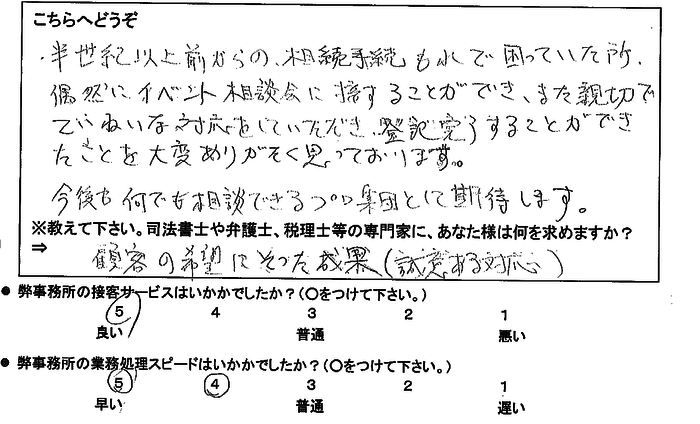 こちらへどうぞ
・半世紀以上前からの、相続手続もれで困っていた所、
偶然にイベント相談会に接することができ、また親切で
ていねいな対応をしていただき、登記完了することができ
たことを大変ありがたく思っております。
今後も何でも相談できるプロ集団として期待します。
※教えて下さい。司法書士や弁護士、税理士等の専門家に、あなた様は何を求めますか？
⇒ 顧客の希望にそった成果（誠意ある対応）
● 弊事務所の接客サービスはいかかでしたか？（○をつけて下さい。）
5 4 3 2 1
良い 普通 悪い
● 弊事務所の業務処理スピードはいかかでしたか？（○をつけて下さい。）
5 4 3 2 1
早い 普通 遅い